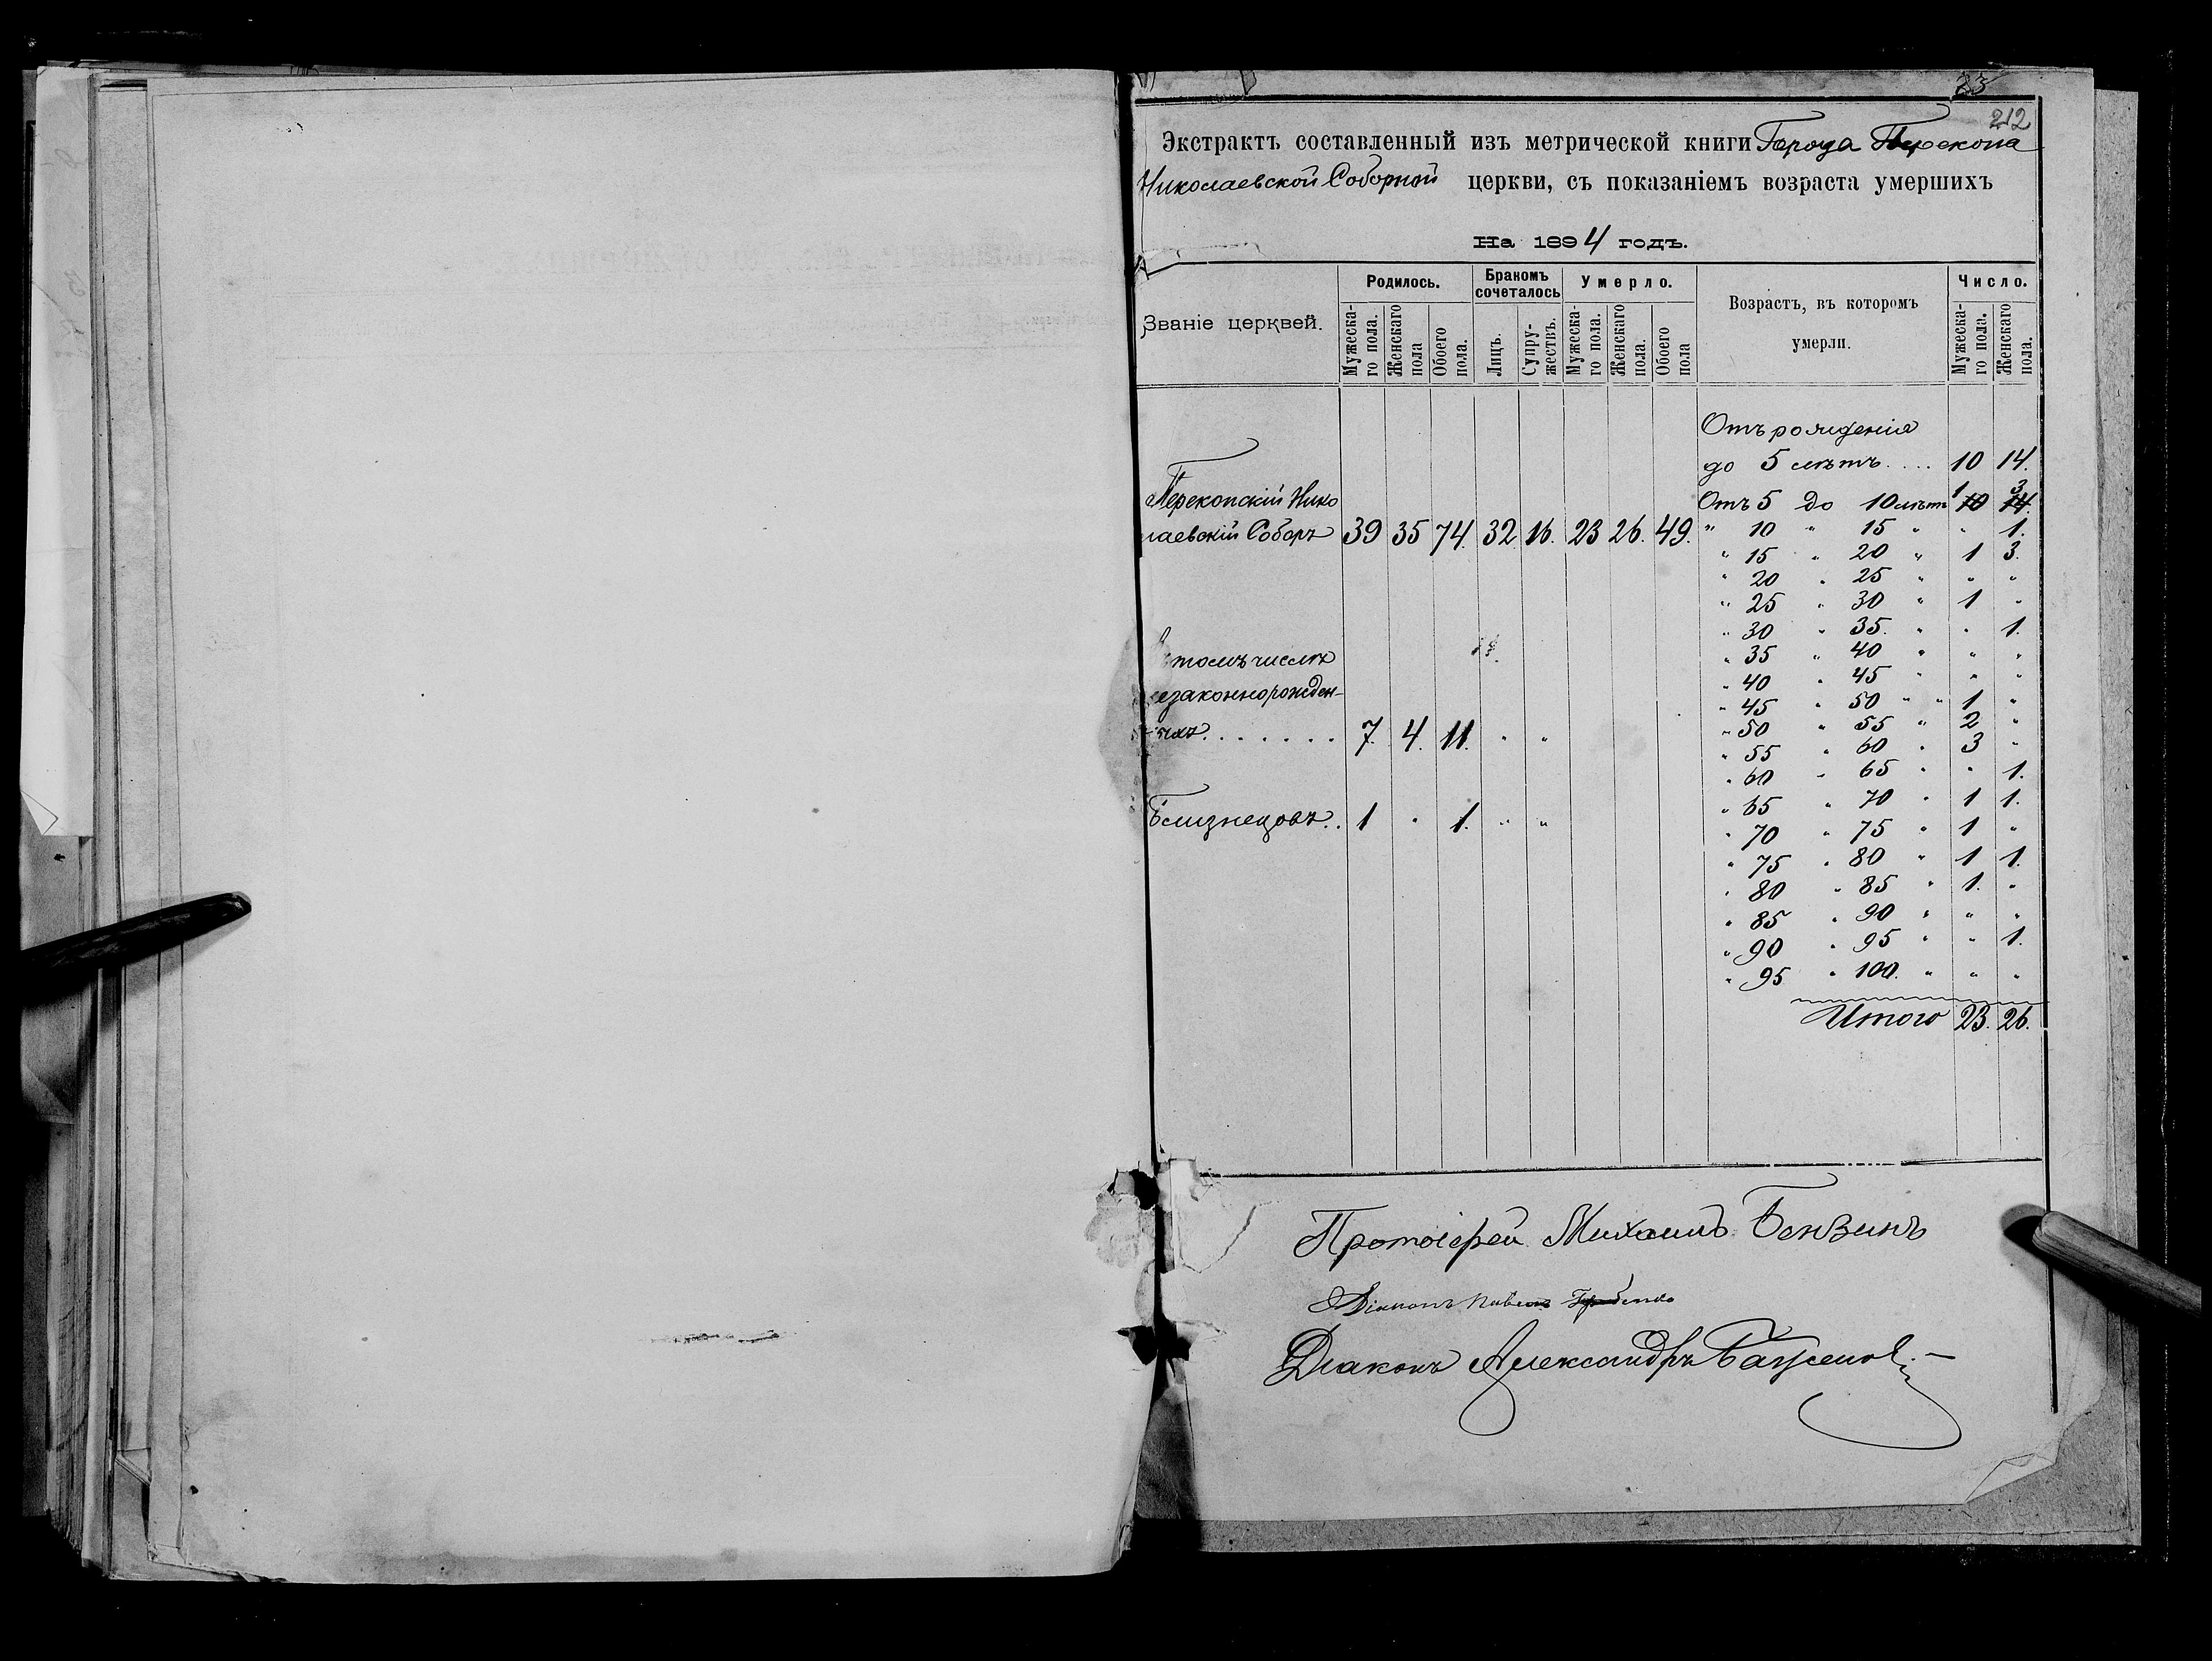 23
212
Экстрактъ составленный изъ метрической книги Города Перекопа
Николаевской Соборной церкви, съ показаніемъ возраста умершихъ
На 1894 годъ.
Званіе церквей.
Родилось.
Мужеска-
го пола.
Женскаго
пола
Обоего
пола.
Бракомъ
сочеталось
Лицъ.
Супру-
жествъ.
Умерло.
Мужеска-
го пола.
Женскаго
пола.
Обоего
пола
Возрастъ, въ которомъ
умерли.
Число.
Мужеска-
го пола.
Женскаго
пола.
Перекопскій Нико
лаевскій Соборъ 39 35 74. 32 16. 23 26. 49.
томъ числѣ
незаконнорожден-
ныхъ....... 7. 4. 11. " "
Близнецовъ.. 1 " 1. " "
Отъ рожденія
до 5 лѣтъ.... 10 14.
Отъ 5 до 10 лѣтъ 1 3
10 14.
" 10 " 15 " " 1.
" 15 " 20 " 1 3.
" 20 " 25 " " "
" 25 " 30 " 1 "
" 30 " 35. " " 1.
" 35 " 40 " " "
" 40 " 45 " " "
" 45 " 50 " " 1 "
" 50 " 55 " 2 "
" 55 " 60 " 3 "
" 60 " 65 " " 1.
" 65 " 70 " 1 1.
" 70 " 75 " 1 "
" 75 " 80 " 1 1.
" 80 " 85 " 1. "
" 85 " 90 " " "
" 90 " 95 " " 1.
" 95 " 100. " " "
Итого 23. 26.
Протоіерей Михаилъ
Діаконъ Павелъ
Діаконъ Александръ